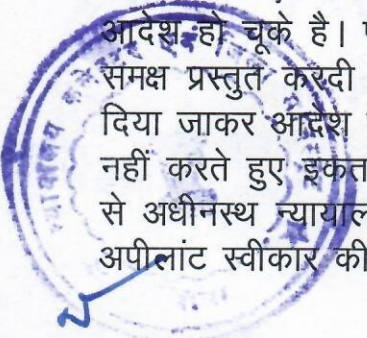 आदेश हो चूके है। प
समक्ष प्रस्तुत करदी
दिया जाकर आदेश
नहीं करते हुए इकत
से अधीनस्थ न्यायाल
अपीलांट स्वीकार की